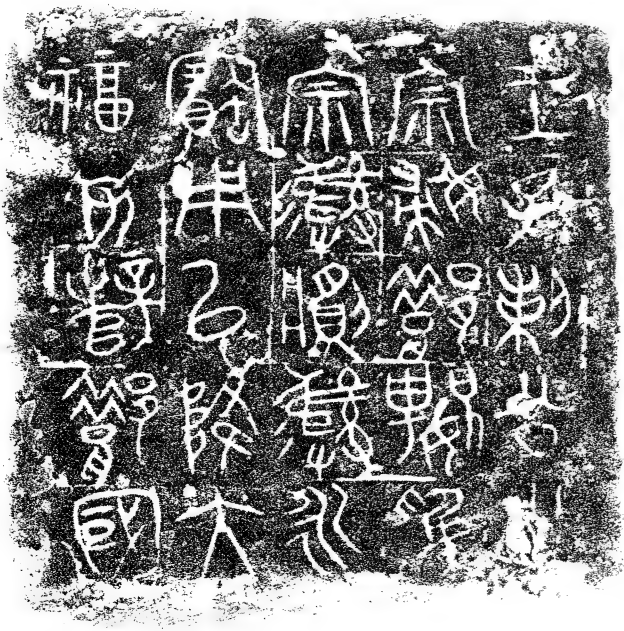 王子剌公之
宗婦嬰為
宗彝䵼彝永
寶用以降大
福保辥國